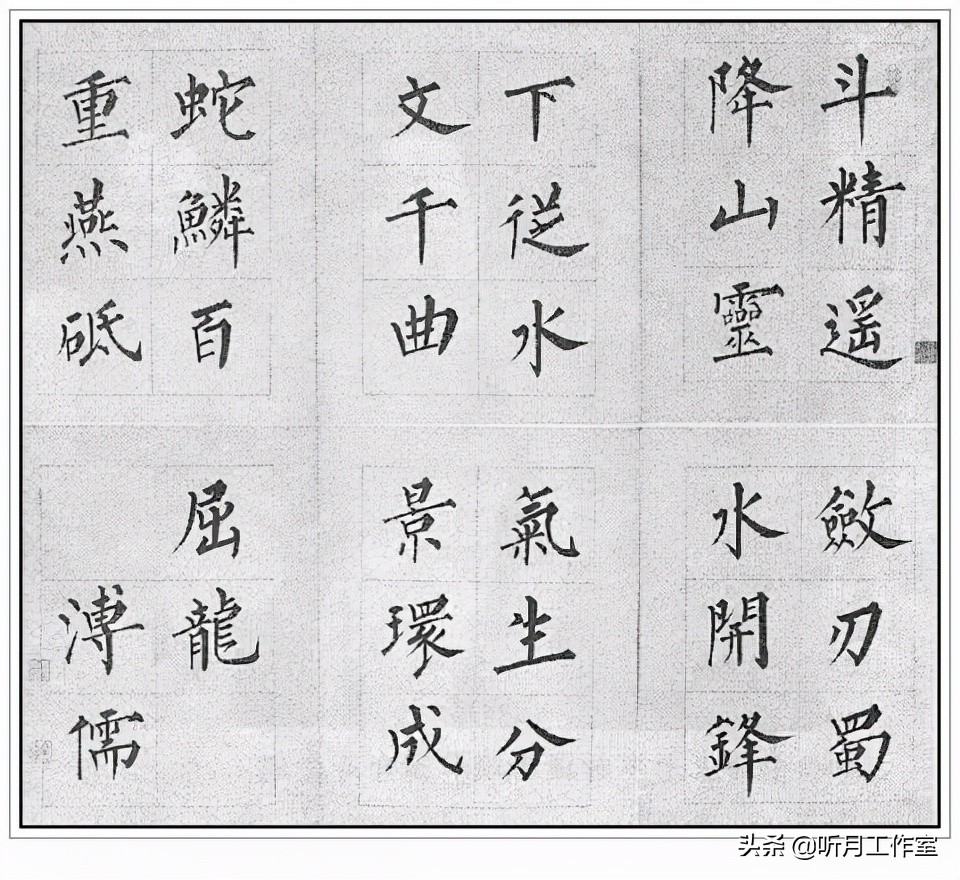 斗精遥
降山靈
下從水
文千曲
蛇鱗百
重燕砥
斂刃蜀
水開鋒
氣生分
景環成
屈龍
溥儒
头条 @听月工作室